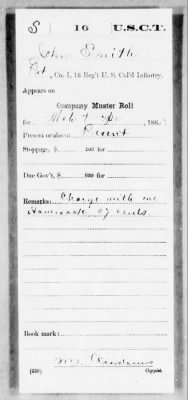 S 16 U.S.C.T.
John Smith
Pvt, Co. I, 16 Reg't U. S. Col'd Infantry.
Appears on
Company Muster Roll
for Mch & Apr, 186
Present or absent Present
Stoppage, $ 100 for
Due Gov't, $ 100 for
Remarks: Charge with one
Haversack 67 cents
Book mark:
(358) Copyist.